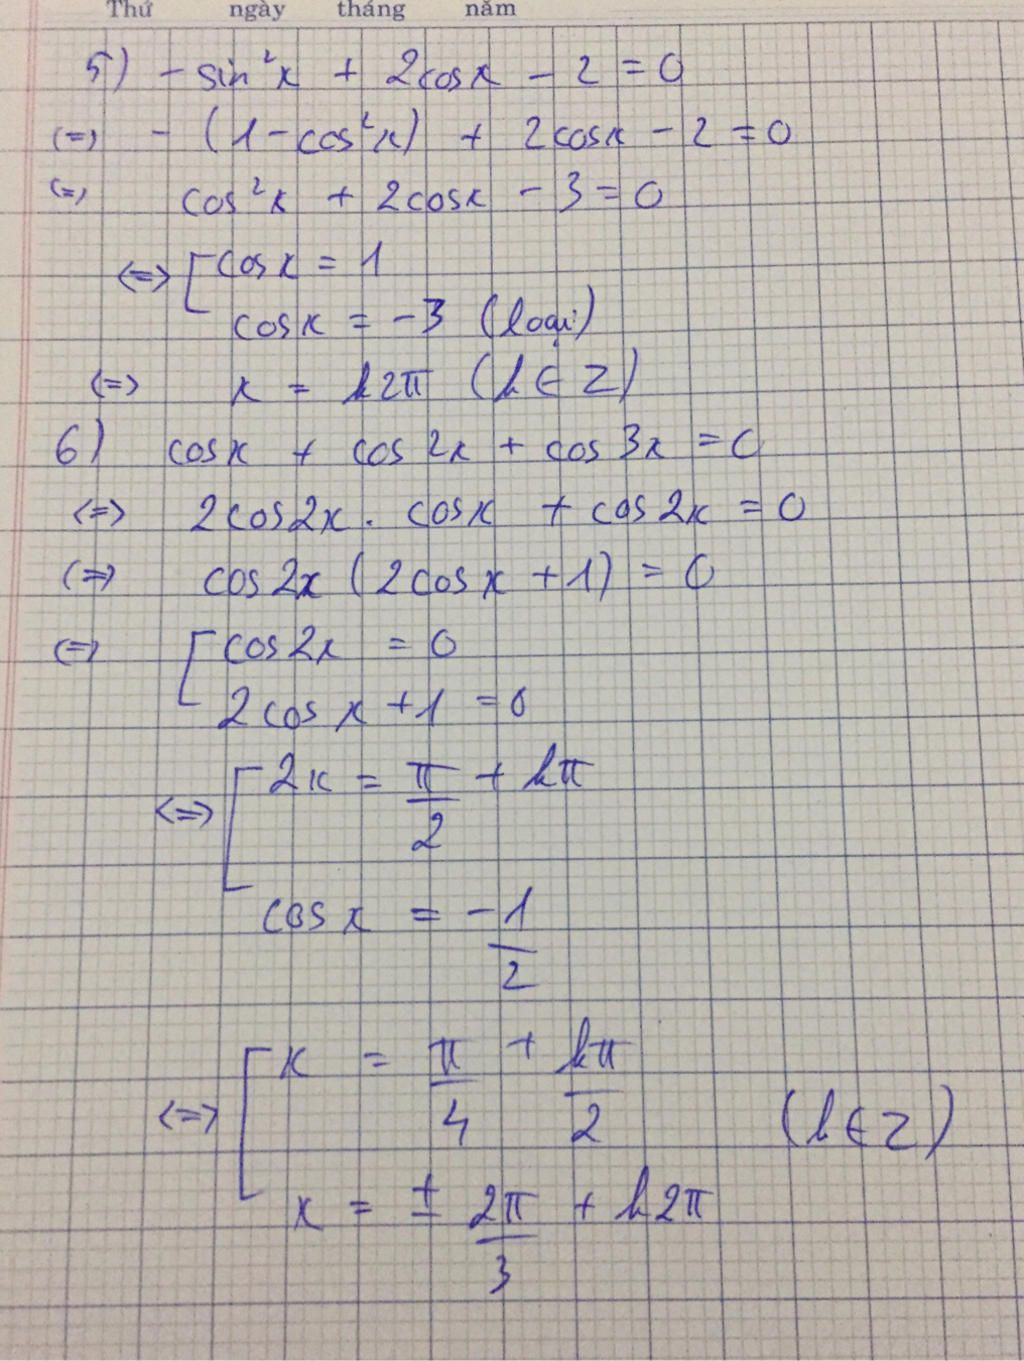 Thứ ngày tháng năm
5) - sin²x + 2cosx - 2 = 0
(=) - (1 - cos²x) + 2cosx - 2 = 0
(=) cos²x + 2cosx - 3 = 0
<=> [ cosx = 1
cosx = -3 (loại)
(=> x = k2π (k ∈ Z)
6) cosx + cos2x + cos3x = 0
<=> 2cos2x . cosx + cos2x = 0
(=> cos2x (2cosx + 1) = 0
(=> [ cos2x = 0
2cosx + 1 = 0
<=> [ 2x = π/2 + kπ
cosx = -1/2
<=> [ x = π/4 + kπ/2 (k ∈ Z)
x = ± 2π/3 + k2π